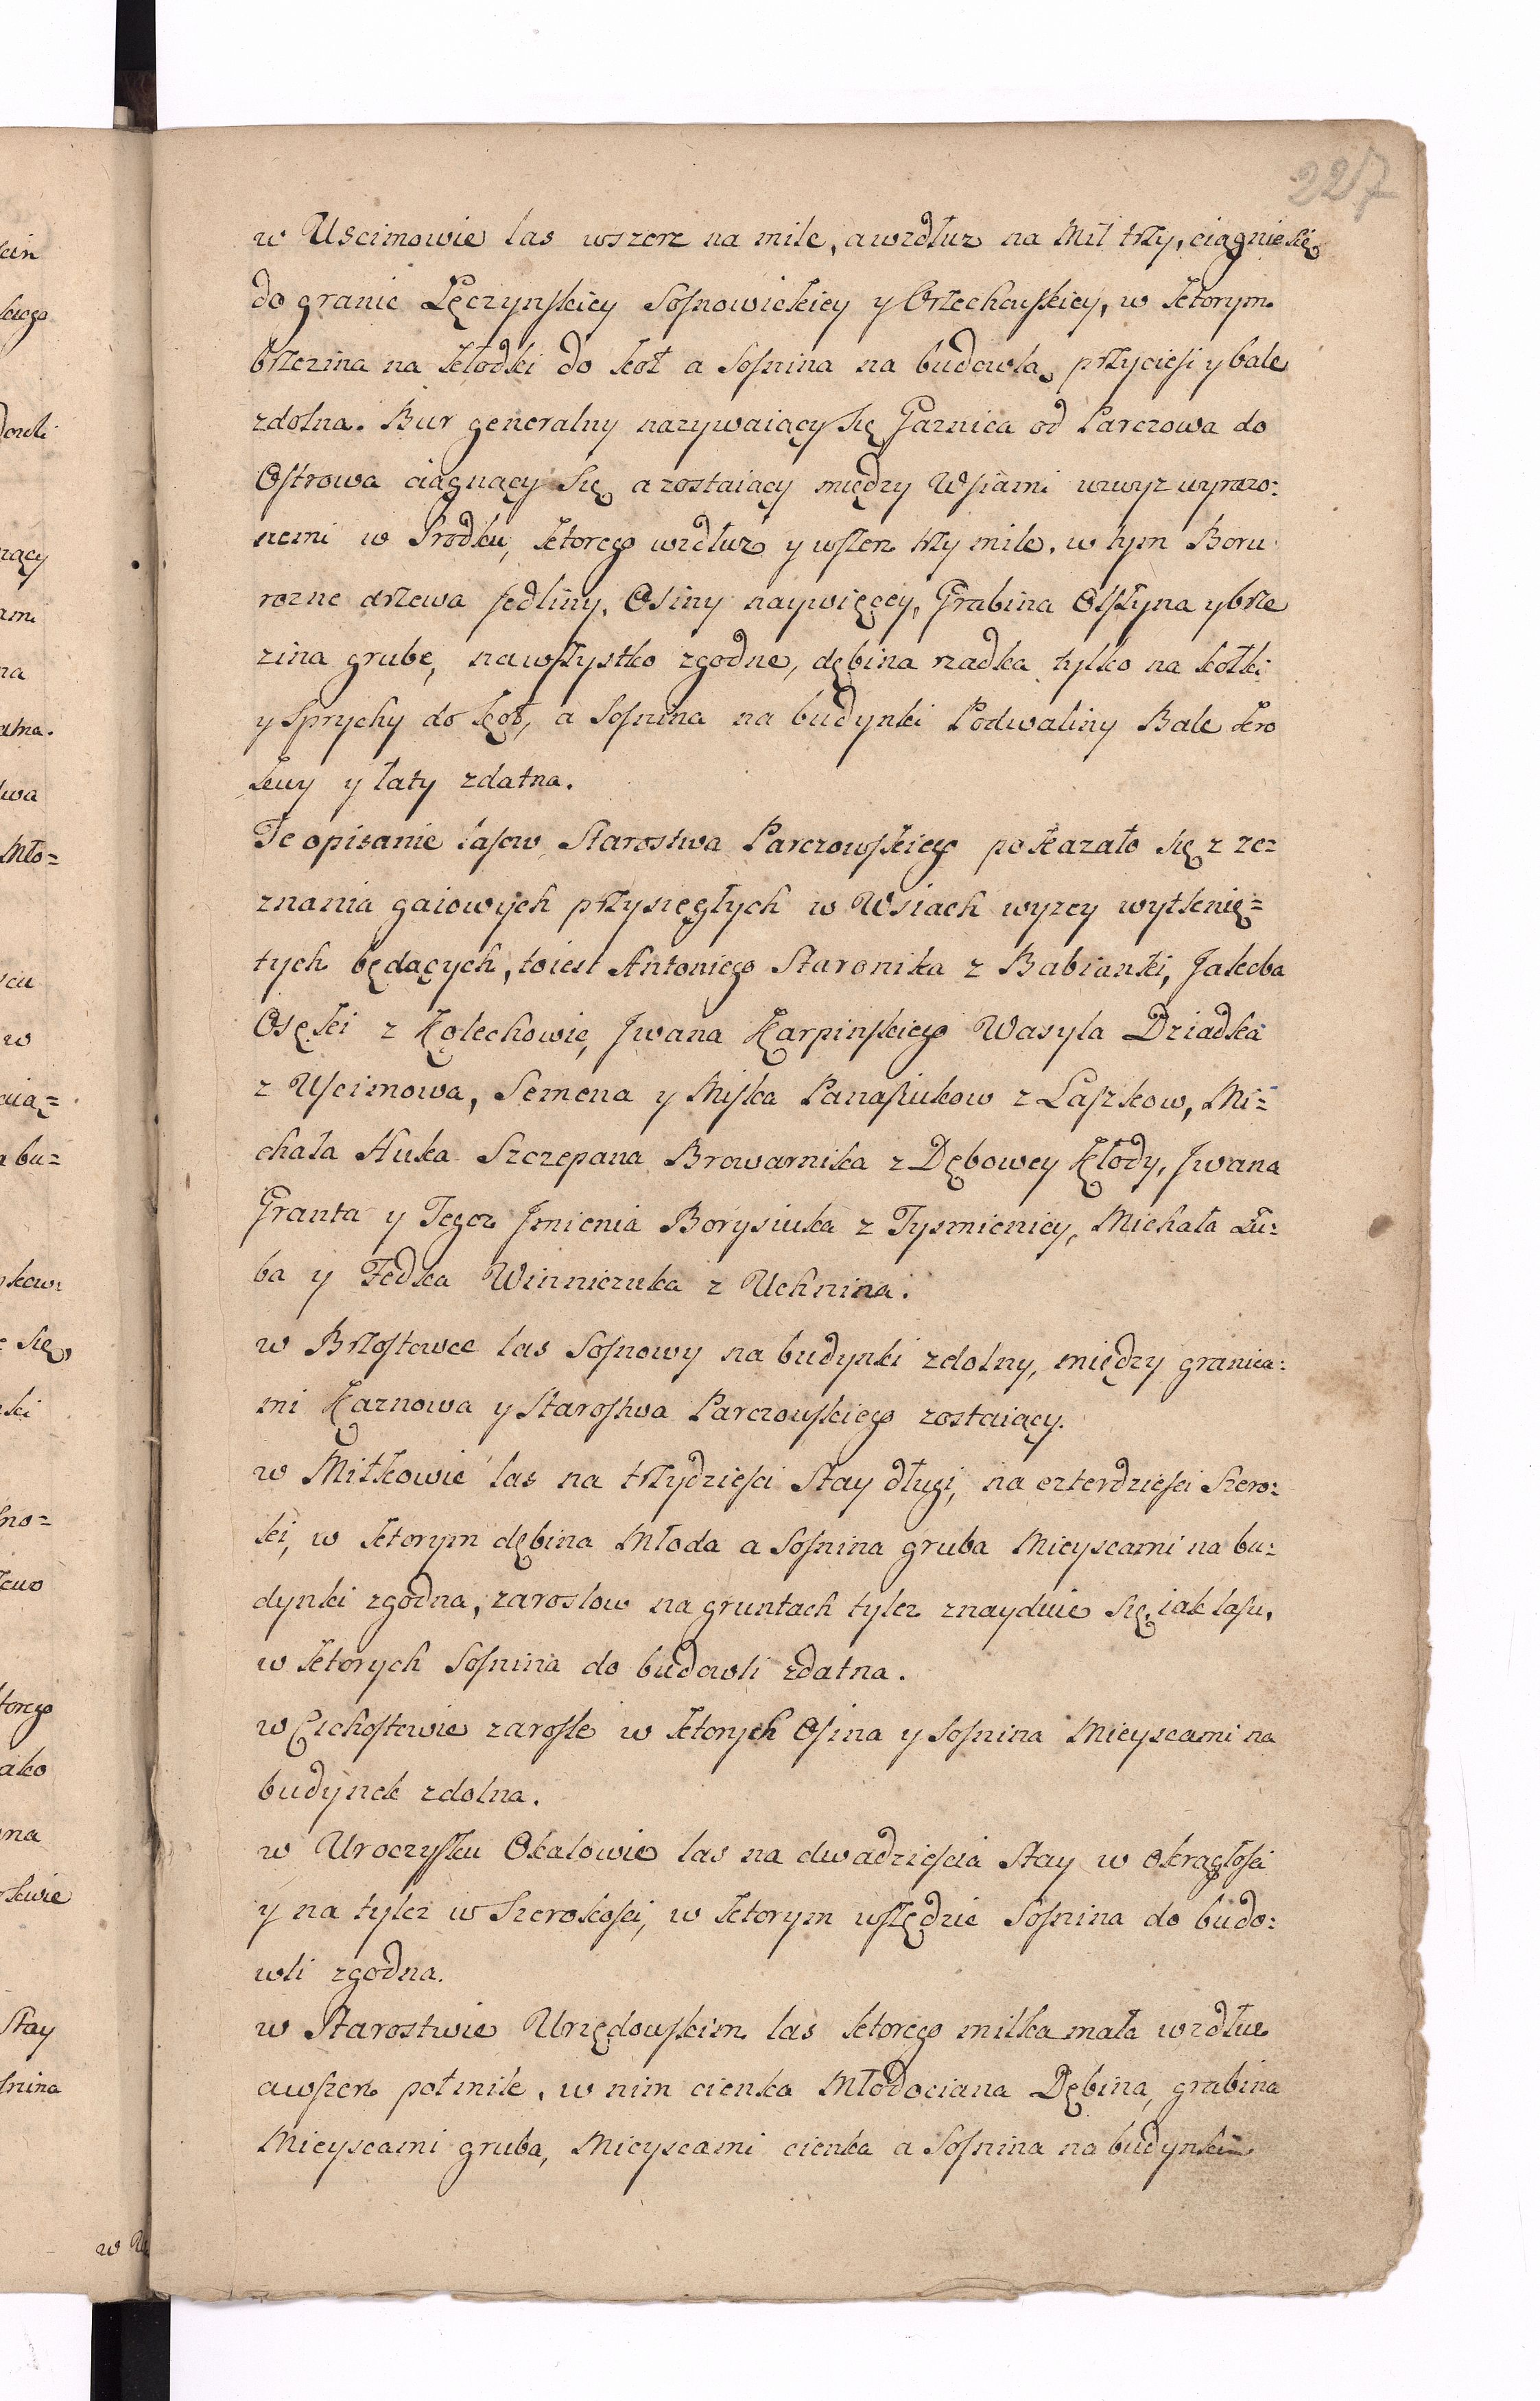 227
w Uscimowie las wszerz na mile, a wzdłuz na Mil trzy, ciągnie się
do granic Łęczynskiey Sosnowickiey y Orzechowskiey, w ktorym
brzezina na kłodki do koł a Sosnina na budowlą przyciesi y bale
zdolna. Bur generalny nazywaiący Się Gaznica od Parczowa do
Ostrowa ciągnący Się a zostaiący między Wsiami wzwyz wyrazo:
nemi w Srodku, ktorego wzdłuz y wszerz trzy mile, w tym Boru
rozne drzewa Jedliny, Osiny naywięcey, Grabina Olszyna y brze
zina grube, na wszystko zgodne, dębina rzadka tylko na kołki
y Sprychy do koł, a Sosnina na budynki Podwaliny Bale kro
kwy y łaty zdatna.
Te opisanie lasow Starostwa Parczowskiego pokazało się z ze=
znania gaiowych przysięgłych w Wsiach wyzey wytknię=
tych będących, toiest Antoniego Staronika z Babianki, Jakoba
Osęki z Kolechowic, Jwana Karpinskiego Wasyla Dziadka
z Uscimowa, Semena y Miska Panasiukow z Laszkow, Mi=
chała Huka Szczepana Browarnika z Dębowey Kłody, Jwana
Granta y Tegoz Jmienia Borysiuka z Tysmienicy, Michała Łu=
ba y Fedka Winniczuka z Uchnina.
w Brzostowce las Sosnowy na budynki zdolny, między granica:
mi Kaznowa y Starostwa Parczowskiego zostaiący.
w Miłkowie las na trzydziesci Stay długi, na czterdziesci Szero:
ki, w ktorym dębina Młoda a Sosnina gruba Mieyscami na bu=
dynki zgodna, zaroslow na gruntach tylez znayduie się, iak lasu,
w ktorych Sosnina do budowli zdatna.
w Cichostowie zarosle w ktorych Osina y Sosnina Mieyscami na
budynek zdolna.
w Uroczysku Okalowie las na dwadziescia Stay w Okrągłosci
y na tylez w Szerokosci, w ktorym wszędzie Sosnina do budo:
wli zgodna.
w Starostwie Urzędowskim las ktorego milka mała wzdłuz
a wszerz poł mile, w nim cienka Młodociana Dębina, grabina
Mieyscami gruba, Mieyscami cienka a Sosnina na budynki